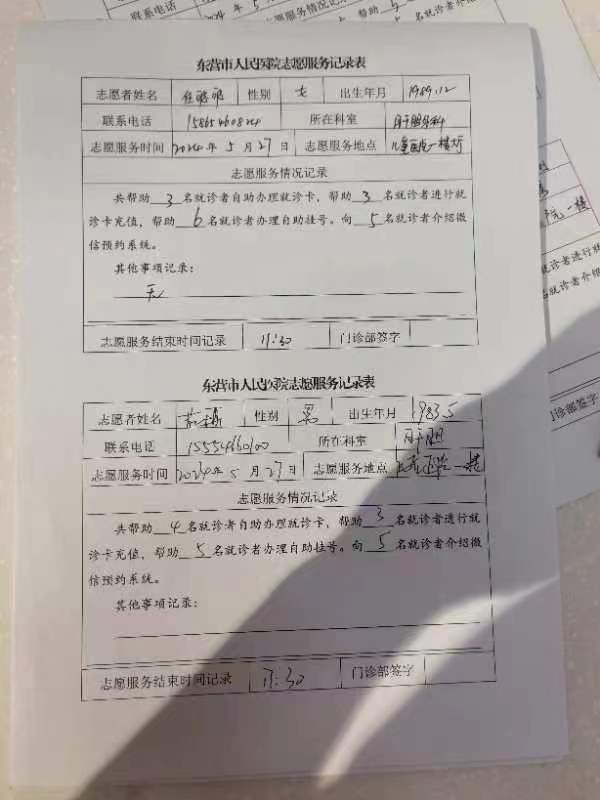 联系电话
东营市人民医院志愿服务记录表
志愿者姓名 性别 女 出生年月 1989.12
联系电话 所在科室 肝胆外科
志愿服务时间 2024年5月27日 志愿服务地点 儿童医院一楼
志愿服务情况记录
共帮助3名就诊者自助办理就诊卡，帮助3名就诊者进行就
诊卡充值，帮助6名就诊者办理自助挂号。向5名就诊者介绍微
信预约系统。
其他事项记录：
无
志愿服务结束时间记录 11:30 门诊部签字
东营市人民医院志愿服务记录表
志愿者姓名 性别 男 出生年月 1983.5
联系电话 所在科室 肝胆
志愿服务时间 2024年5月27日 志愿服务地点 一楼
志愿服务情况记录
共帮助4名就诊者自助办理就诊卡，帮助3名就诊者进行就
诊卡充值，帮助5名就诊者办理自助挂号。向5名就诊者介绍微
信预约系统。
其他事项记录：
志愿服务结束时间记录 11:30 门诊部签字
门诊部签字